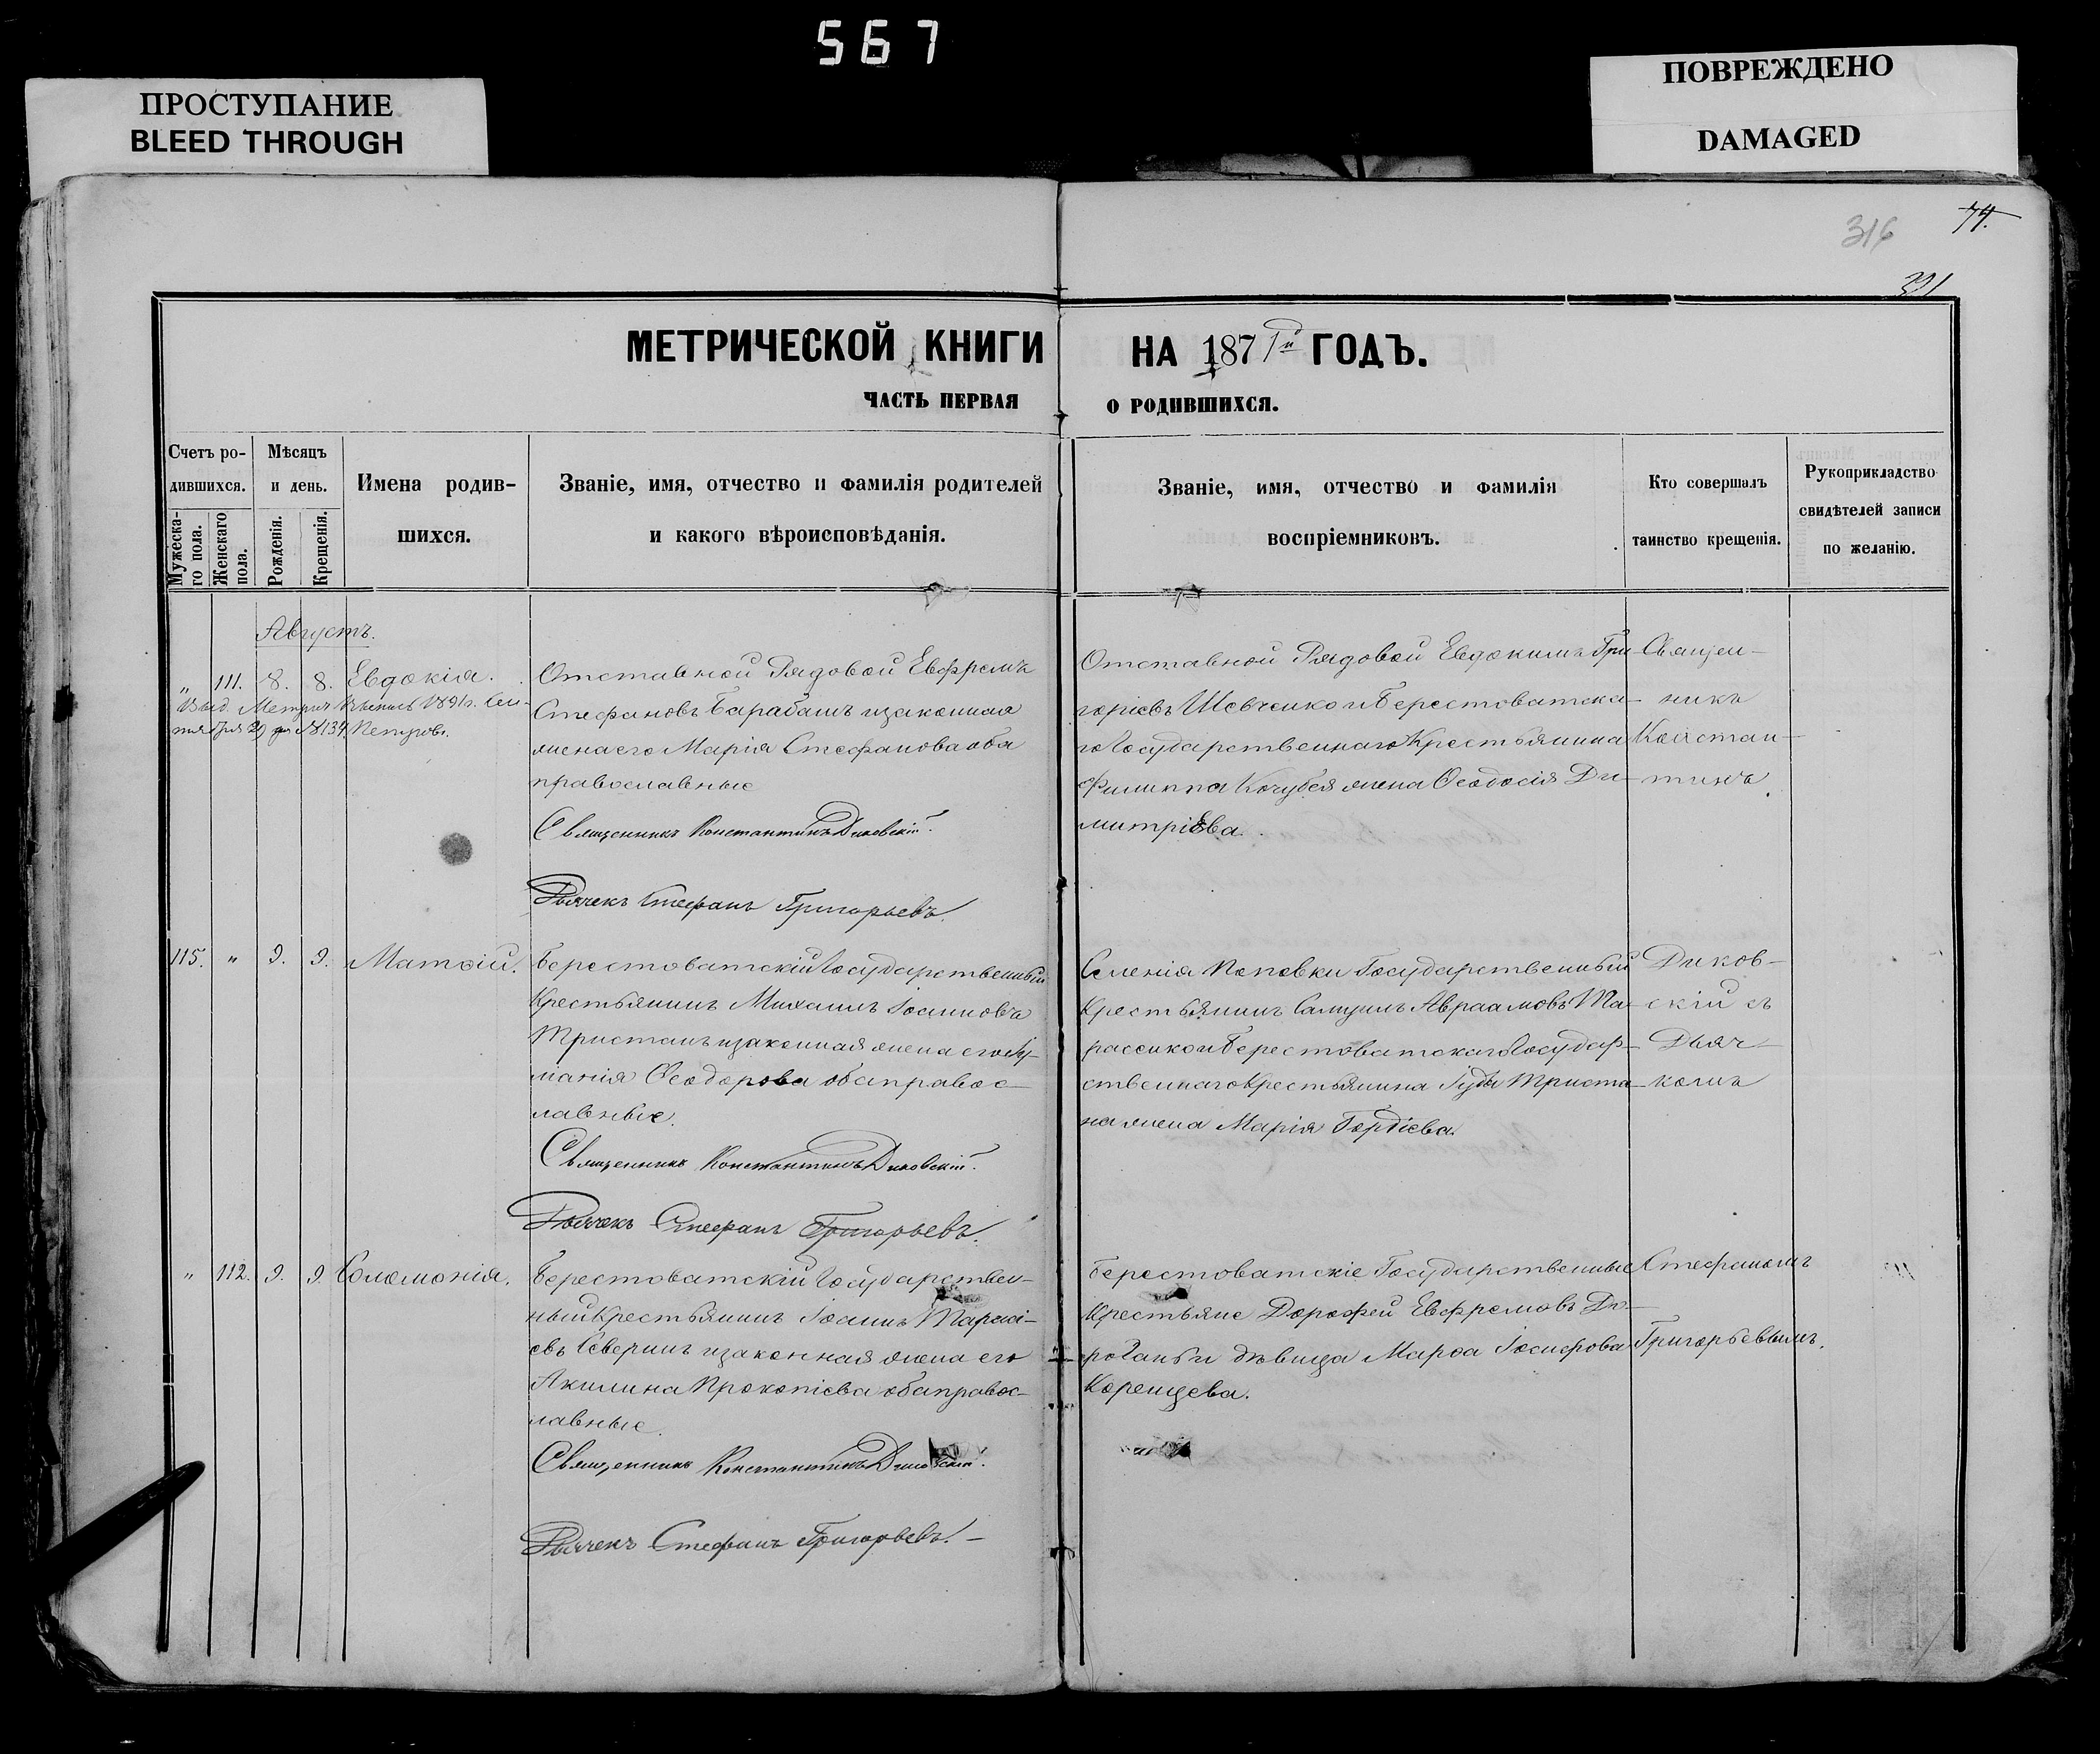 567
ПРОСТУПАНИЕ
BLEED THROUGH
ПОВРЕЖДЕНО
DAMAGED
316
74.
МЕТРИЧЕСКОЙ КНИГИ НА 1871й ГОДЪ.
ЧАСТЬ ПЕРВАЯ О РОДИВШИХСЯ.
Счетъ ро-
дившихся.
Мужеска-
го пола.
Женскаго
пола.
Мѣсяцъ
и день.
Рожденія.
Крещенія.
Имена родив-
шихся.
Званіе, имя, отчество и фамилія родителей
и какого вѣроисповѣданія.
Званіе, имя, отчество и фамилія
воспріемниковъ.
Кто совершалъ
таинство крещенія.
Рукоприкладство
свидѣтелей записи
по желанію.
Августъ.
„ 111. 8. 8. Евдокія.
Выд. Метрич. 1891г. Сен-
тября 29 дня №134. Петровъ.
Отставной Рядовой Евфремъ
Стефановъ Барабашъ изаконная
жена его Марія Стефанова оба
православные
Священникъ Константинъ Диковскій.
Дьячекъ Стефанъ Григорьевъ.
Отставной Рядовой Евдокимъ Гри-
горіевъ Шевченко и Берестоватска-
го Государственнаго Крестьянина
Филиппа Кочубея жена Ѳеодосія Ди-
митріева.
Священ-
никъ
Констан-
тинъ
115. „ 9. 9. Матѳій.
Берестоватскій Государственный
Крестьянинъ Михаилъ Іоанновъ
Тристанъ изаконная жена его
Ѳеодорова оба правос-
лавные.
Священникъ Константинъ Диковскій.
Дьячекъ Стефанъ Григорьевъ.
Селенія Поповки Государственный
Крестьянинъ Самуилъ Авраамовъ Та-
расенко и Берестоватскаго Государ-
ственнаго Крестьянина Іуды Триста-
на жена Марія Гордіева.
Диков-
скій съ
Дьяч-
комъ
„ 112. 9. 9. Соломонія.
Берестоватскій Государствен-
ный Крестьянинъ Іоаннъ Тарасі-
евъ Северинъ изаконная жена его
Акилина Прокопіева оба правос-
лавные.
Священникъ Константинъ Диковскій.
Дьячекъ Стефанъ Григорьевъ.
Берестоватскіе Государственные
Крестьяне Дорофей Евфремовъ До-
и дѣвица Марѳа Іосифова
Коренцева.
Стефаномъ
Григорьевымъ.